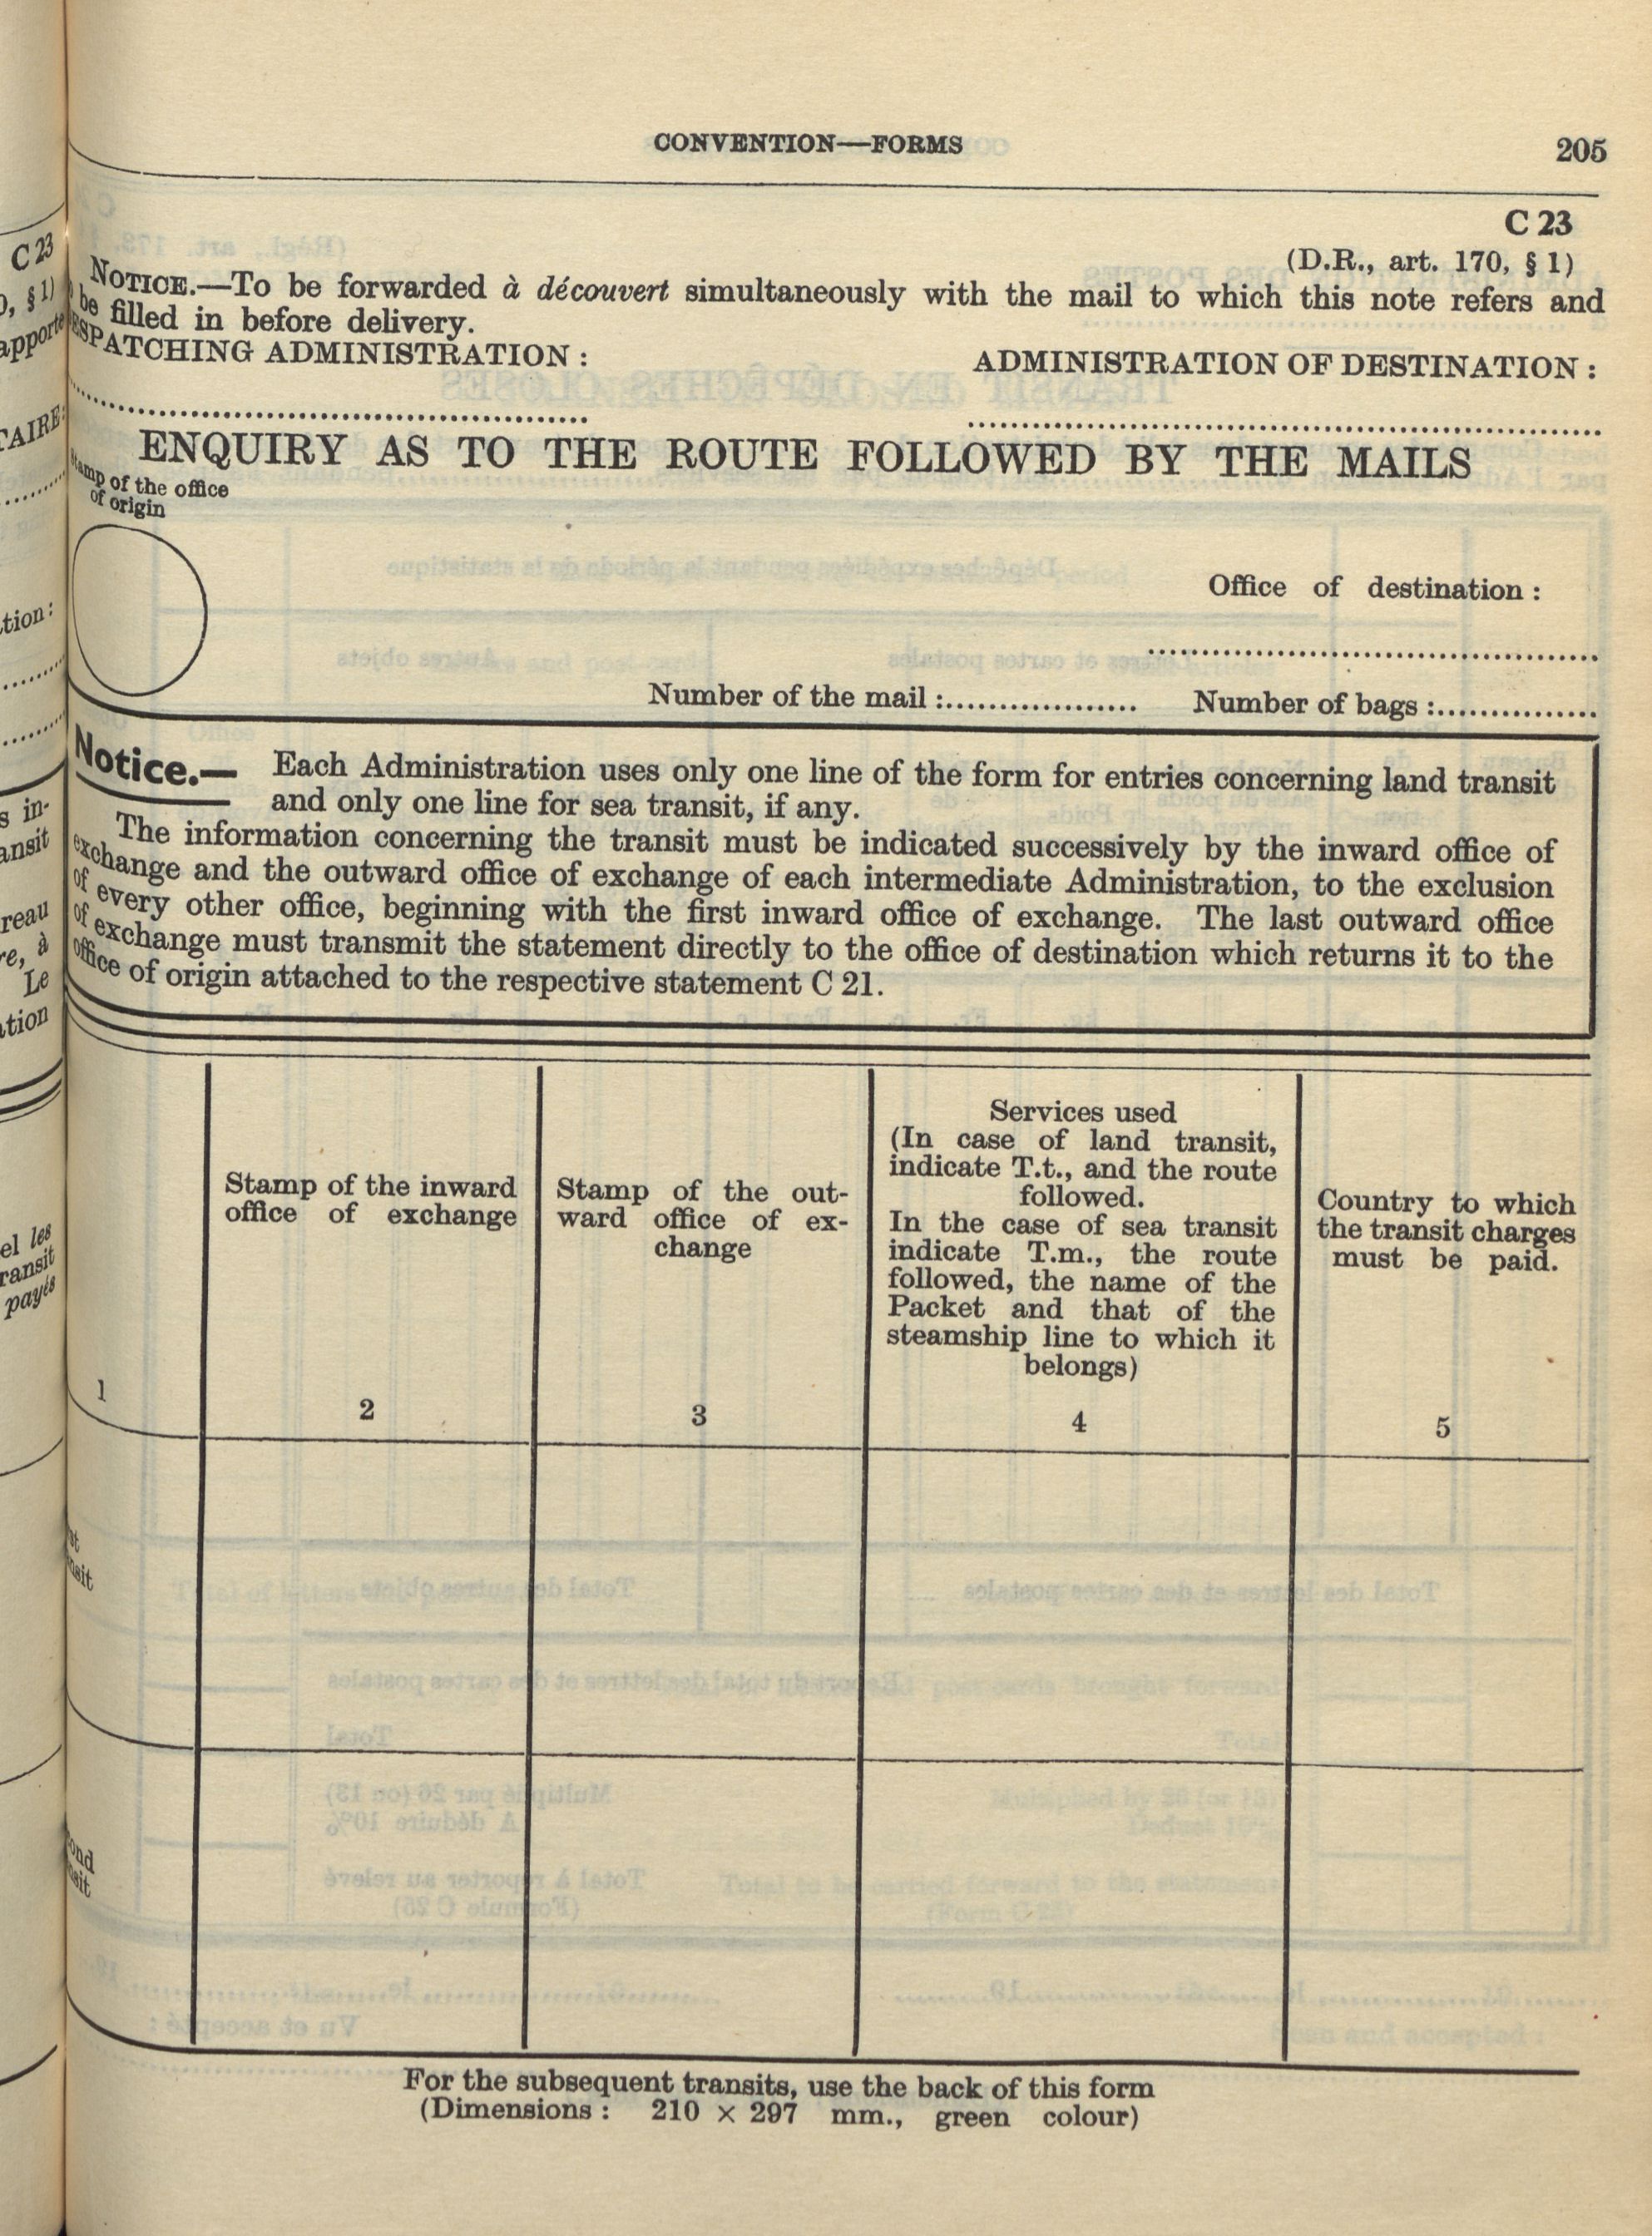 CONVENTION—FORMS
205
C 23
(D.R., art. 170, § 1)
NOTICE.—To be forwarded à découvert simultaneously with the mail to which this note refers and
be filled in before delivery.
ESPATCHING ADMINISTRATION :
ADMINISTRATION OF DESTINATION :
ENQUIRY AS TO THE ROUTE FOLLOWED BY THE MAILS
Stamp of the office
of origin
Office of destination :
Number of the mail :..................
Number of bags :...............
Notice.— Each Administration uses only one line of the form for entries concerning land transit
and only one line for sea transit, if any.
The information concerning the transit must be indicated successively by the inward office of
exchange and the outward office of exchange of each intermediate Administration, to the exclusion
of every other office, beginning with the first inward office of exchange. The last outward office
of exchange must transmit the statement directly to the office of destination which returns it to the
office of origin attached to the respective statement C 21.
1
Stamp of the inward
office of exchange
2
Stamp of the out-
ward office of ex-
change
3
Services used
(In case of land transit,
indicate T.t., and the route
followed.
In the case of sea transit
indicate T.m., the route
followed, the name of the
Packet and that of the
steamship line to which it
belongs)
4
Country to which
the transit charges
must be paid.
5
For the subsequent transits, use the back of this form
(Dimensions : 210 × 297 mm., green colour)